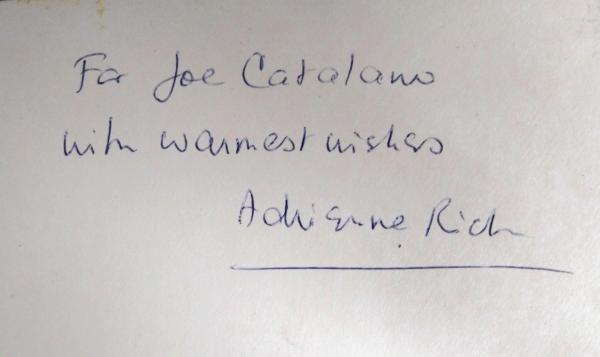 For Joe Catalano
with warmest wishes
Adrienne Rich